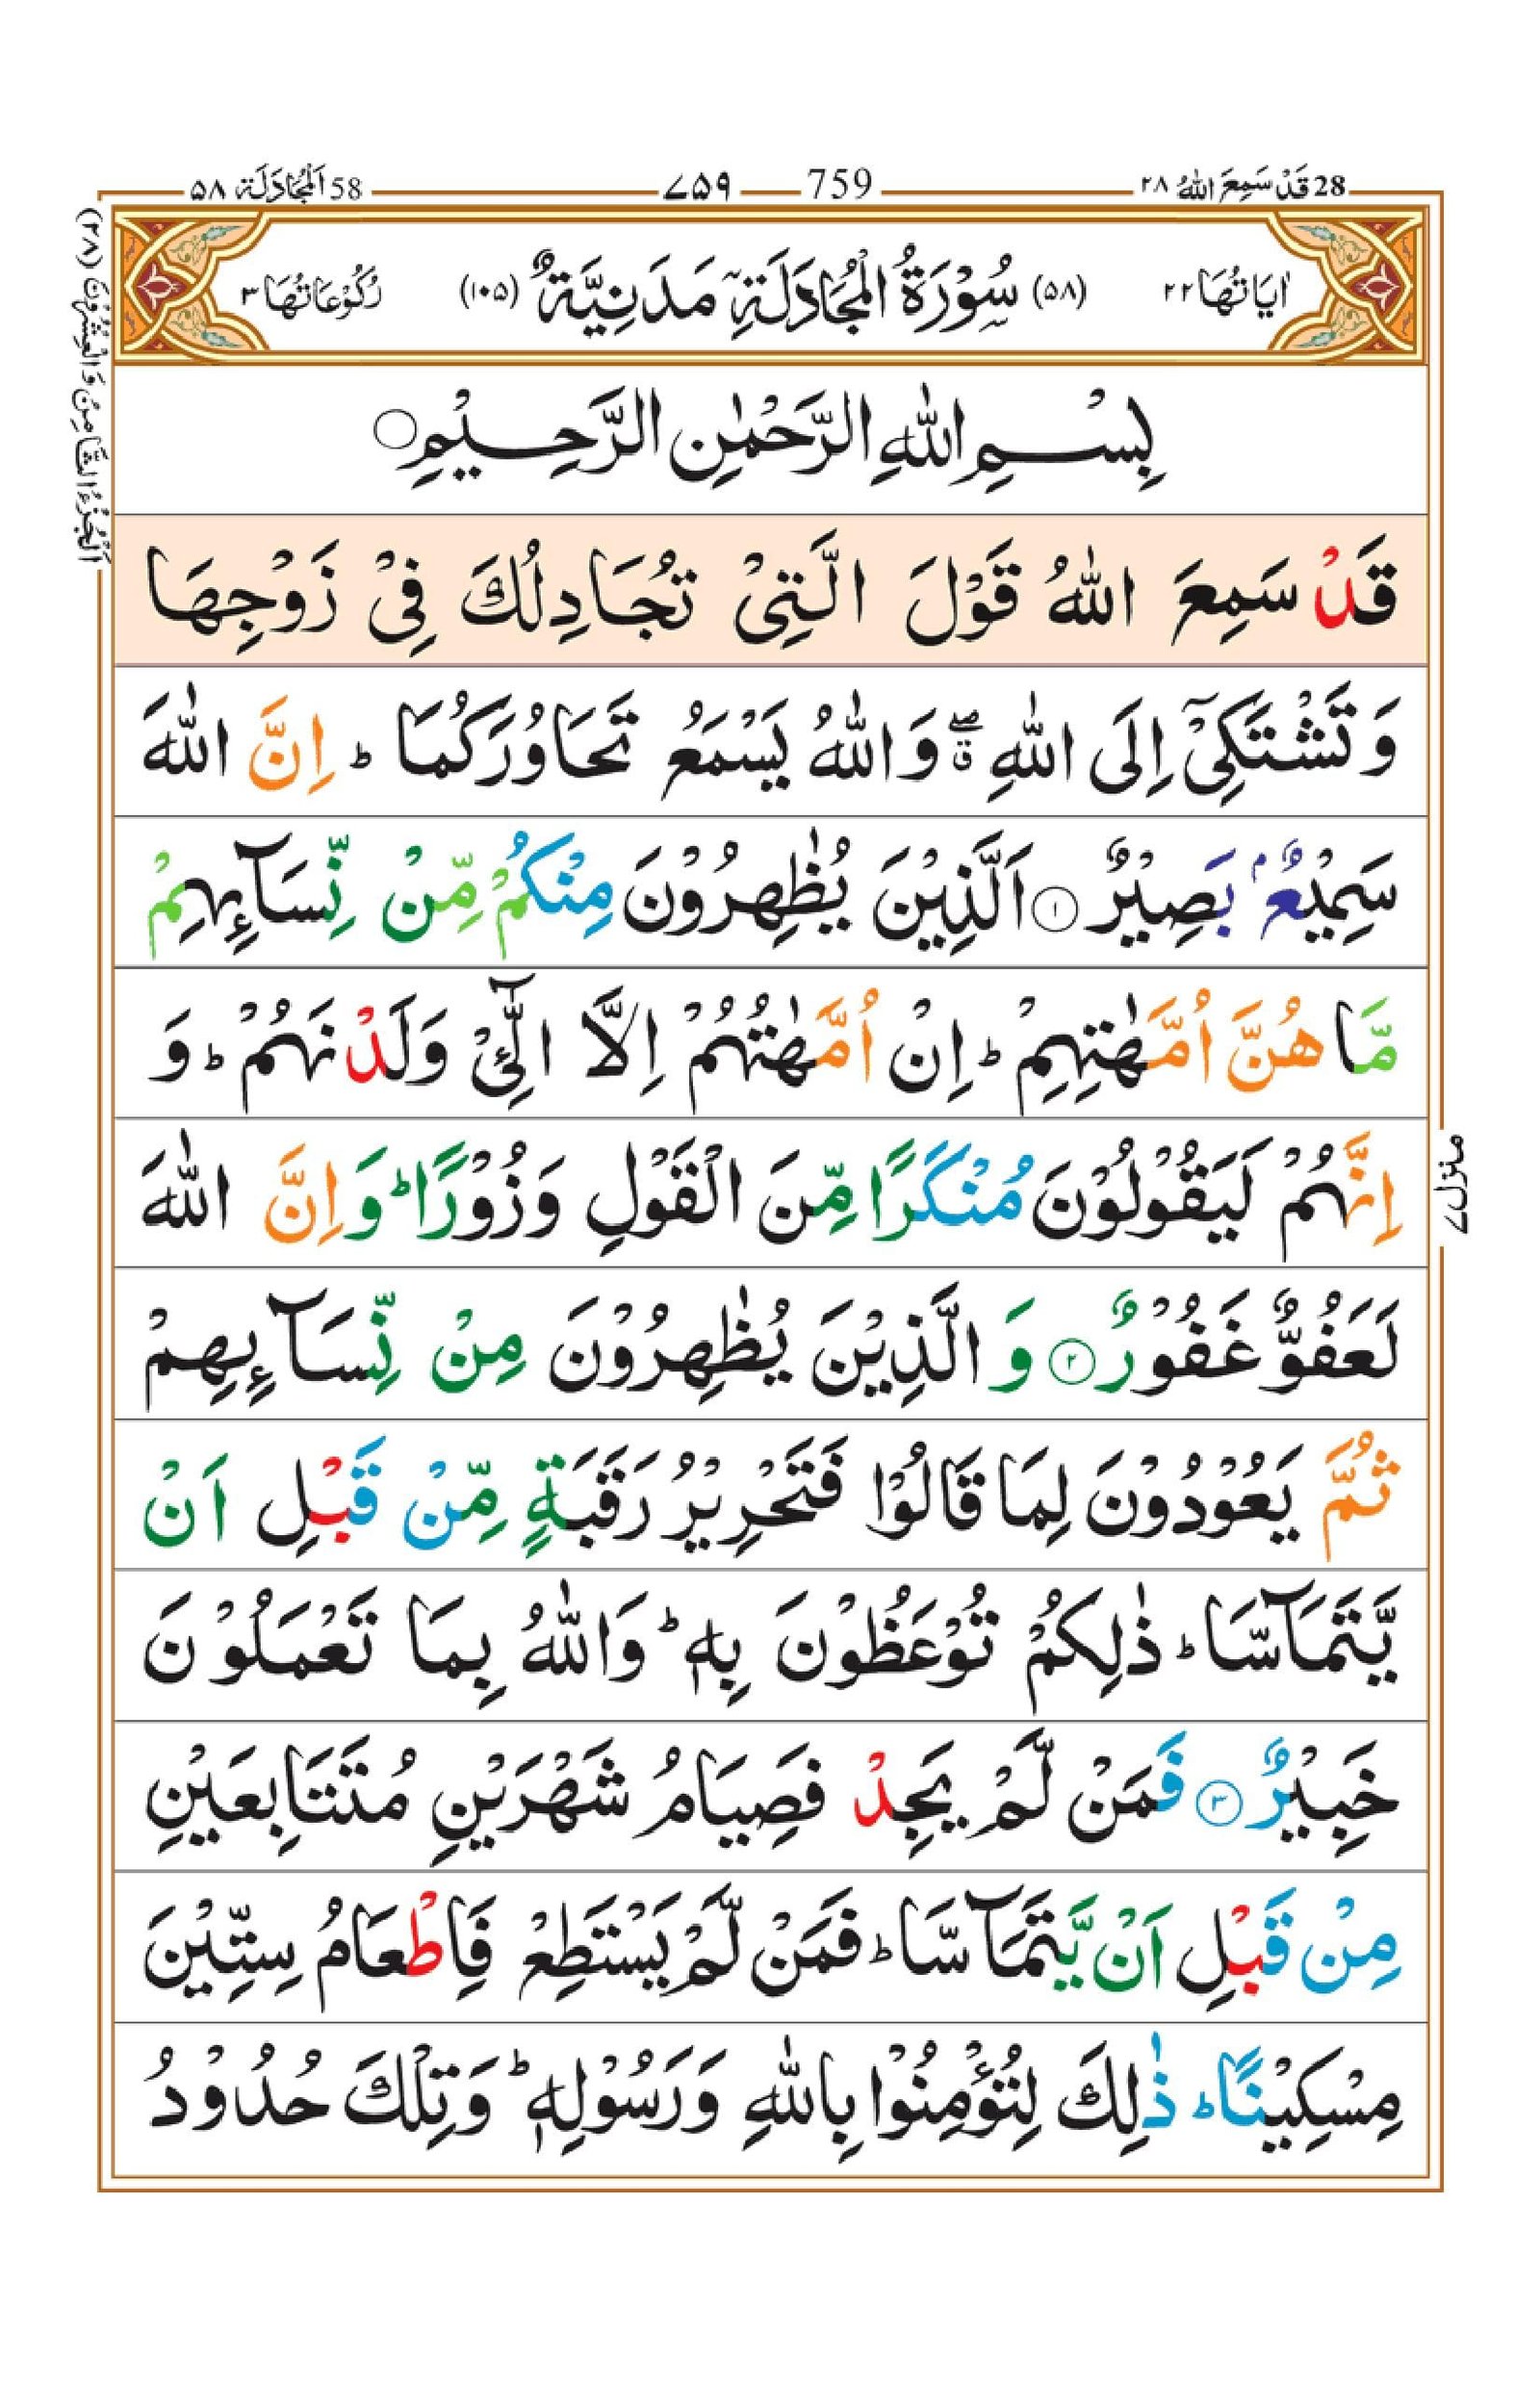 28 قَدْ سَمِعَ اللهُ ٢٨ 759 ۷۵۹ 58 اَلْمُجَادَلَة ۵۸
اٰيَاتُهَا ٢٢ (۵۸) سُوْرَةُ الْمُجَادَلَةِ مَدَنِيَّةٌ (۱۰۵) رُكُوْعَاتُهَا ٣
اَلْجُزْءُ الثَّامِنُ وَالْعِشْرُوْنَ (٢٨)
بِسْمِ اللهِ الرَّحْمٰنِ الرَّحِيْمِ
قَدْ سَمِعَ اللهُ قَوْلَ الَّتِيْ تُجَادِلُكَ فِيْ زَوْجِهَا
وَتَشْتَكِيْٓ اِلَى اللهِ ۖۗ وَاللهُ يَسْمَعُ تَحَاوُرَكُمَا ؕ اِنَّ اللهَ
سَمِيْعٌۢ بَصِيْرٌ ۝۱ اَلَّذِيْنَ يُظٰهِرُوْنَ مِنْكُمْ مِّنْ نِّسَآئِهِمْ
مَّا هُنَّ اُمَّهٰتِهِمْ ؕ اِنْ اُمَّهٰتُهُمْ اِلَّا الّٰٓـِٔيْ وَلَدْنَهُمْ ؕ وَ
اِنَّهُمْ لَيَقُوْلُوْنَ مُنْكَرًا مِّنَ الْقَوْلِ وَزُوْرًا ؕ وَاِنَّ اللهَ
لَعَفُوٌّ غَفُوْرٌ ۝۲ وَالَّذِيْنَ يُظٰهِرُوْنَ مِنْ نِّسَآئِهِمْ
ثُمَّ يَعُوْدُوْنَ لِمَا قَالُوْا فَتَحْرِيْرُ رَقَبَةٍ مِّنْ قَبْلِ اَنْ
يَّتَمَآسَّا ؕ ذٰلِكُمْ تُوْعَظُوْنَ بِهٖ ؕ وَاللهُ بِمَا تَعْمَلُوْنَ
خَبِيْرٌ ۝۳ فَمَنْ لَّمْ يَجِدْ فَصِيَامُ شَهْرَيْنِ مُتَتَابِعَيْنِ
مِنْ قَبْلِ اَنْ يَّتَمَآسَّا ؕ فَمَنْ لَّمْ يَسْتَطِعْ فَاِطْعَامُ سِتِّيْنَ
مِسْكِيْنًا ؕ ذٰلِكَ لِتُؤْمِنُوْا بِاللهِ وَرَسُوْلِهٖ ؕ وَتِلْكَ حُدُوْدُ
منزل ۷